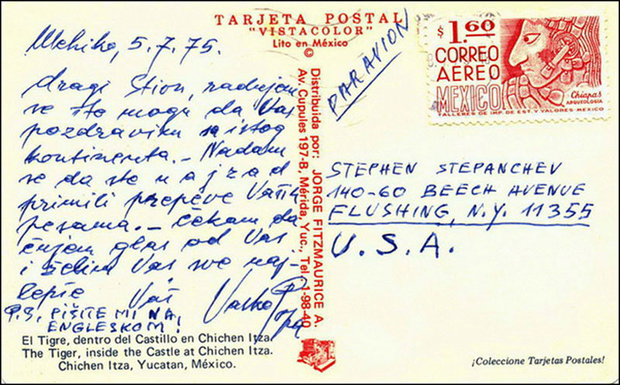 TARJETA POSTAL
"VISTACOLOR"
Lito en México
Mehiko, 5.7.75.
dragi Stion, radujem
se što mogu da Vas
pozdravim sa istog
kontinenta. – Nadam
se da ste najzad
primili prepeve Vaših
pesama. – Čekam da
čujem glas od Vas
i želim Vas sve naj-
lepše
Vaš Vasko Popa
P.S. PIŠITE MI NA
ENGLESKOM!
El Tigre, dentro del Castillo en Chichen Itza.
The Tiger, inside the Castle at Chichen Itza.
Chichen Itza, Yucatan, México.
Distribuida por: JORGE FITZMAURICE A.
Av. Cupules 197-B, Mérida, Yuc., Tel. 1-98-40
PAR AVION
$1.60
CORREO
AEREO
MEXICO
Chiapas
ARQUEOLOGIA
TALLERES DE IMP. DE EST. Y VALORES MEXICO
STEPHEN STEPANCHEV
140-60 BEECH AVENUE
FLUSHING, N.Y. 11355
U.S.A.
¡Coleccione Tarjetas Postales!